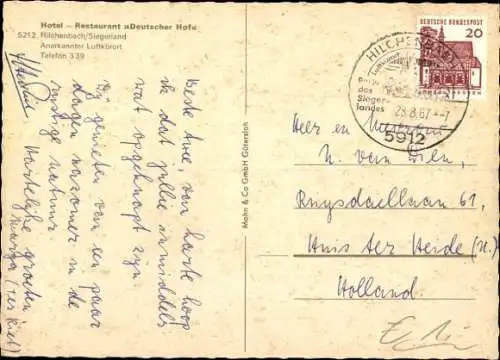 Hotel — Restaurant »Deutscher Hof«
5912 Hilchenbach/Siegerland
Anerkannter Luftkurort
Telefon 339
Beste twee, van harte hoop
ik dat jullie inmiddels
wat opgeknapt zijn.
Wij genieten van een paar
dagen nazomer in de
rustige natuur
Hartelijke groeten
Marga (ter Kiel)
Mohn & Co GmbH Gütersloh
DEUTSCHE BUNDESPOST
20
HILCHENBACH
Luftkurort
des
Sieger-
landes
28.8.67 - 7
5912
Heer en Mevrouw
N. van Wien,
Ruysdaellaan 61,
Huis ter Heide (U.)
Holland.